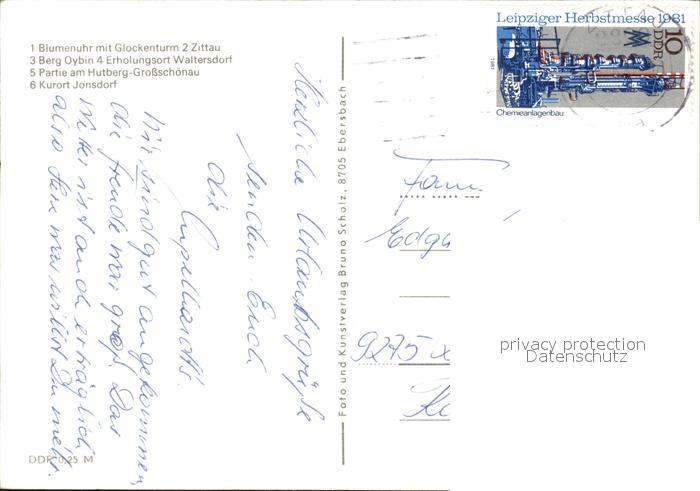 1 Blumenuhr mit Glockenturm 2 Zittau
3 Berg Oybin 4 Erholungsort Waltersdorf
5 Partie am Hutberg-Großschönau
6 Kurort Jonsdorf
Herzliche Urlaubsgrüße
senden Euch
die
Wir sind gut angekommen,
die Freude war groß. Das
Wetter ist auch erträglich
also Herz was willst Du mehr.
DDR 0,25 M
Foto und Kunstverlag Bruno Scholz, 8705 Ebersbach
Leipziger Herbstmesse 1981
10
DDR
1981
Chemieanlagenbau
ZITTAU
Fam.
Edga
9275
privacy protection
Datenschutz